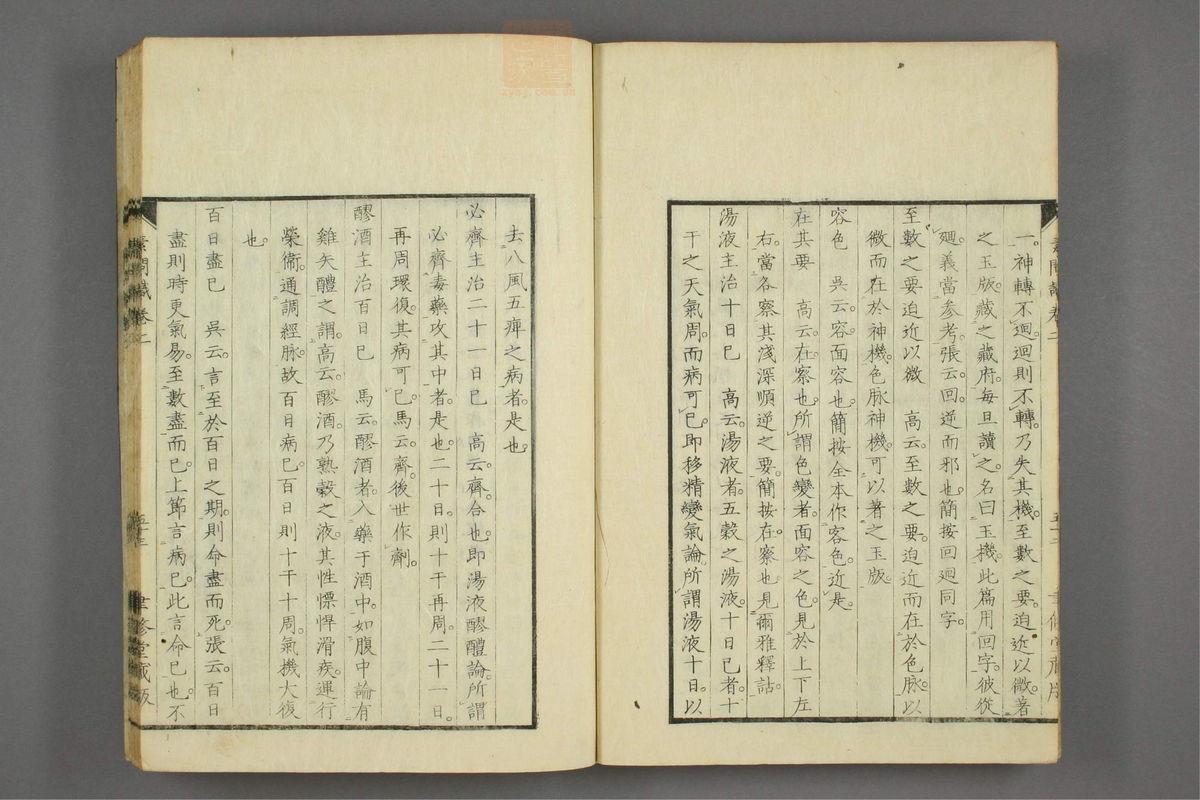 一神轉不迴迴則不轉乃失其機至數之要迫近以微著
之玉版藏之藏府每旦讀之名曰玉機此篇用回字彼從
迴義當參考張云回逆而邪也簡按回迴同字
至數之要迫近以微　高云至數之要迫近而在於色脉以
微而在於神機色脉神機可以著之玉版
容色　吳云容面容也簡按全本作客色近是
在其要　高云在察也所謂色變者面容之色見於上下左
右當各察其淺深順逆之要簡按在察也見爾雅釋詁
湯液主治十日已　高云湯液者五穀之湯液十日已者十
干之天氣周而病可已即移精變氣論所謂湯液十日以
去八風五痺之病者是也
必齊主治二十一日已　高云齊合也即湯液醪醴論所謂
必齊毒藥攻其中者是也二十日則十干再周二十一日
再周環復其病可已馬云齊後世作劑
醪酒主治百日已　馬云醪酒者入藥于酒中如腹中論有
雞矢醴之謂高云醪酒乃熟穀之液其性慓悍滑疾運行
榮衞通調經脉故百日病已百日則十干十周氣機大復
也
百日盡已　吳云言至於百日之期則命盡而死張云百日
盡則時更氣易至數盡而已上節言病已此言命已也不
素問識卷二
聿修堂藏版